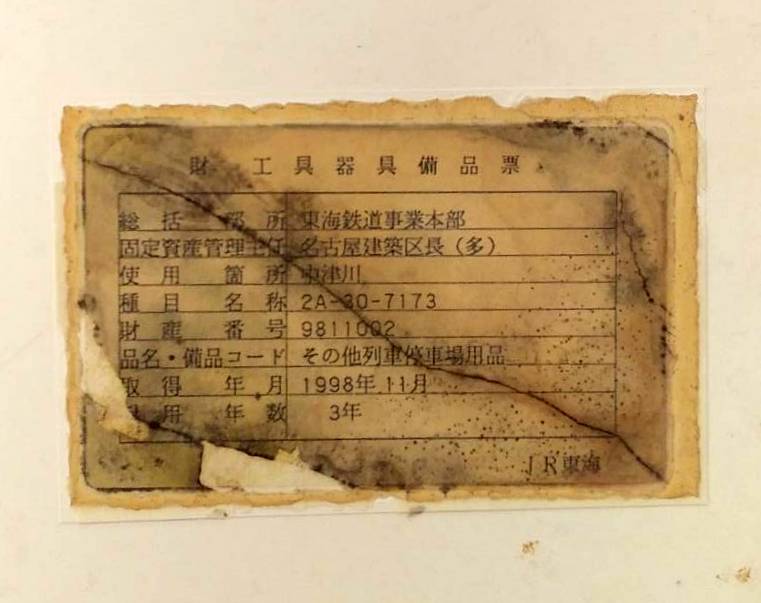 財 工具器具備品票
総括部所 東海鉄道事業本部
固定資産管理主任 名古屋建築区長（多）
使用箇所 中津川
種目名称 2A-30-7173
財産番号 9811002
品名・備品コード その他列車停車場用品
取得年月 1998年 11月
用年数 3年
JR東海